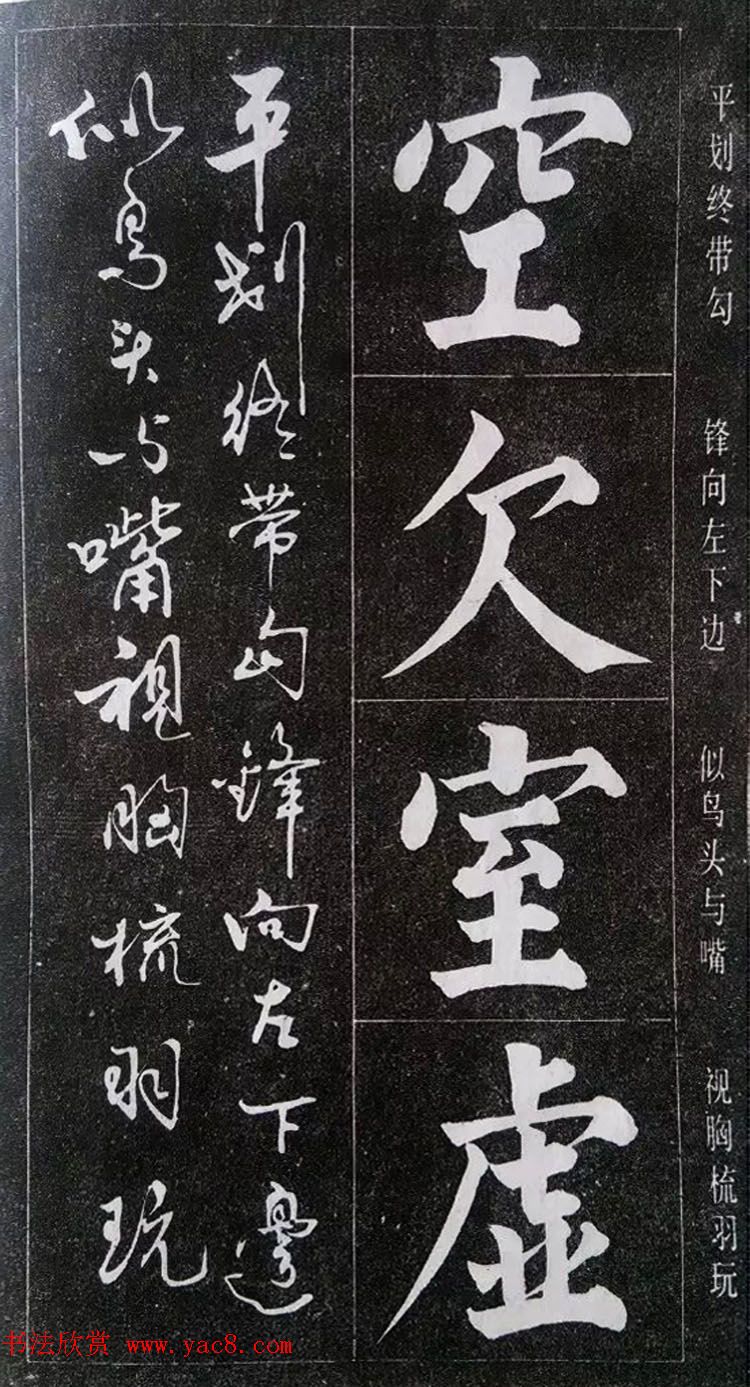 平划终带勾 锋向左下边 似鸟头与嘴 视胸梳羽玩
空欠室虚
平划终带勾锋向左下邊
似鸟头与嘴視胸梳羽玩
书法欣赏 www.yac8.com